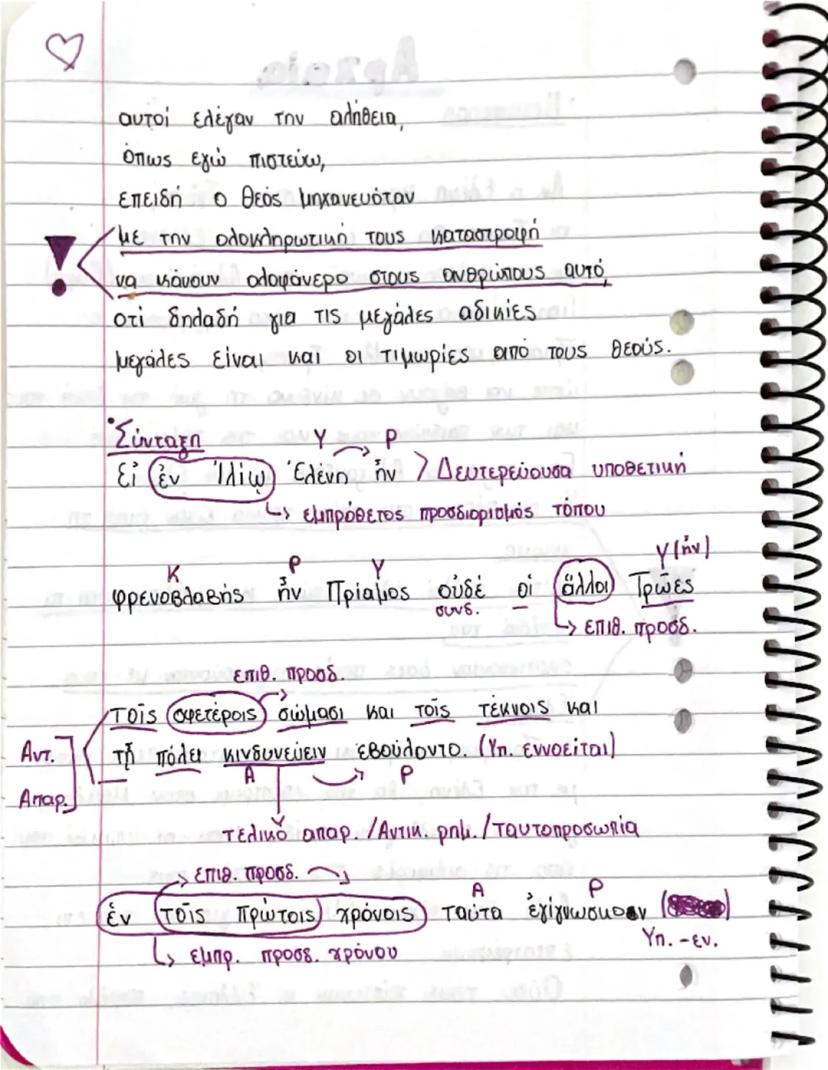 αυτοί ελέγαν την αλήθεια,
όπως εγώ πιστεύω,
επειδή ο θεός μηχανευόταν
με την ολοκληρωτική τους καταστροφή
να κάνουν ολοφάνερο στους ανθρώπους αυτό,
ότι δηλαδή για τις μεγάλες αδικίες
μεγάλες είναι και οι τιμωρίες από τους θεούς.
Σύνταξη
Υ Ρ
Εἰ ἐν Ἰλίῳ Ἑλένη ἦν > Δευτερεύουσα υποθετική
↳ εμπρόθετος προσδιορισμός τόπου
Κ Ρ Υ Υ (ἦν)
φρενοβλαβής ἦν Πρίαμος οὐδέ οἱ ἄλλοι Τρῶες
συνδ.
↳ επιθ. προσδ.
επιθ. προσδ.
τοῖς σφετέροις σώμασι και τοῖς τέκνοις και
Αντ. τῇ πόλει κινδυνεύειν εβούλοντο. (Υπ. εννοείται)
Απαρ. Α Ρ
τελικό απαρ. /Αντικ. ρημ. /Ταυτοπροσωπία
επιθ. προσδ. Α Ρ
ἐν τοῖς πρώτοις χρόνοις ταῦτα ἐγίγνωσκον
↳ εμπρ. προσδ. χρόνου Υπ. -εν.